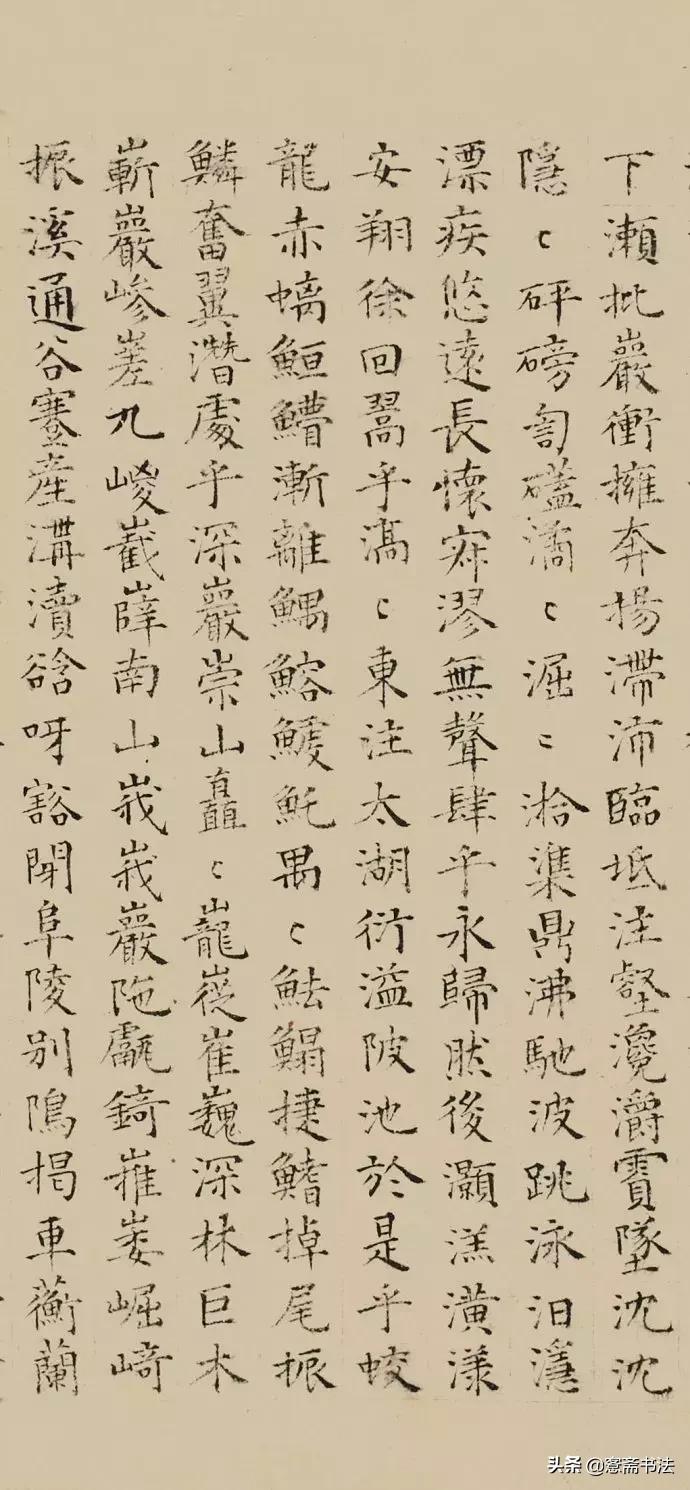 下瀨批巖衝擁奔揚滯沛臨坻注壑瀺灂霣墜沈沈
隱〻砰磅訇礚潏〻淈〻湁潗鼎沸馳波跳泳汩濦
漂疾悠遠長懷寂漻無聲肆乎永歸然後灝溔潢漾
安翔徐回翯乎滈〻東注太湖衍溢陂池於是乎蛟
龍赤螭䱭䲛漸離鰅鰫鰬魠禺〻魼鰨揵鰭掉尾振
鱗奮翼潛處乎深巖崇山矗〻巃嵸崔巍深林巨木
嶄巖嵾嵳九嵕巀嶭南山峩峩巖陁甗錡嶊崣崛崎
振溪通谷蹇產溝瀆谽呀豁閜阜陵別隝揭車蘅蘭
头条 @愙斋书法